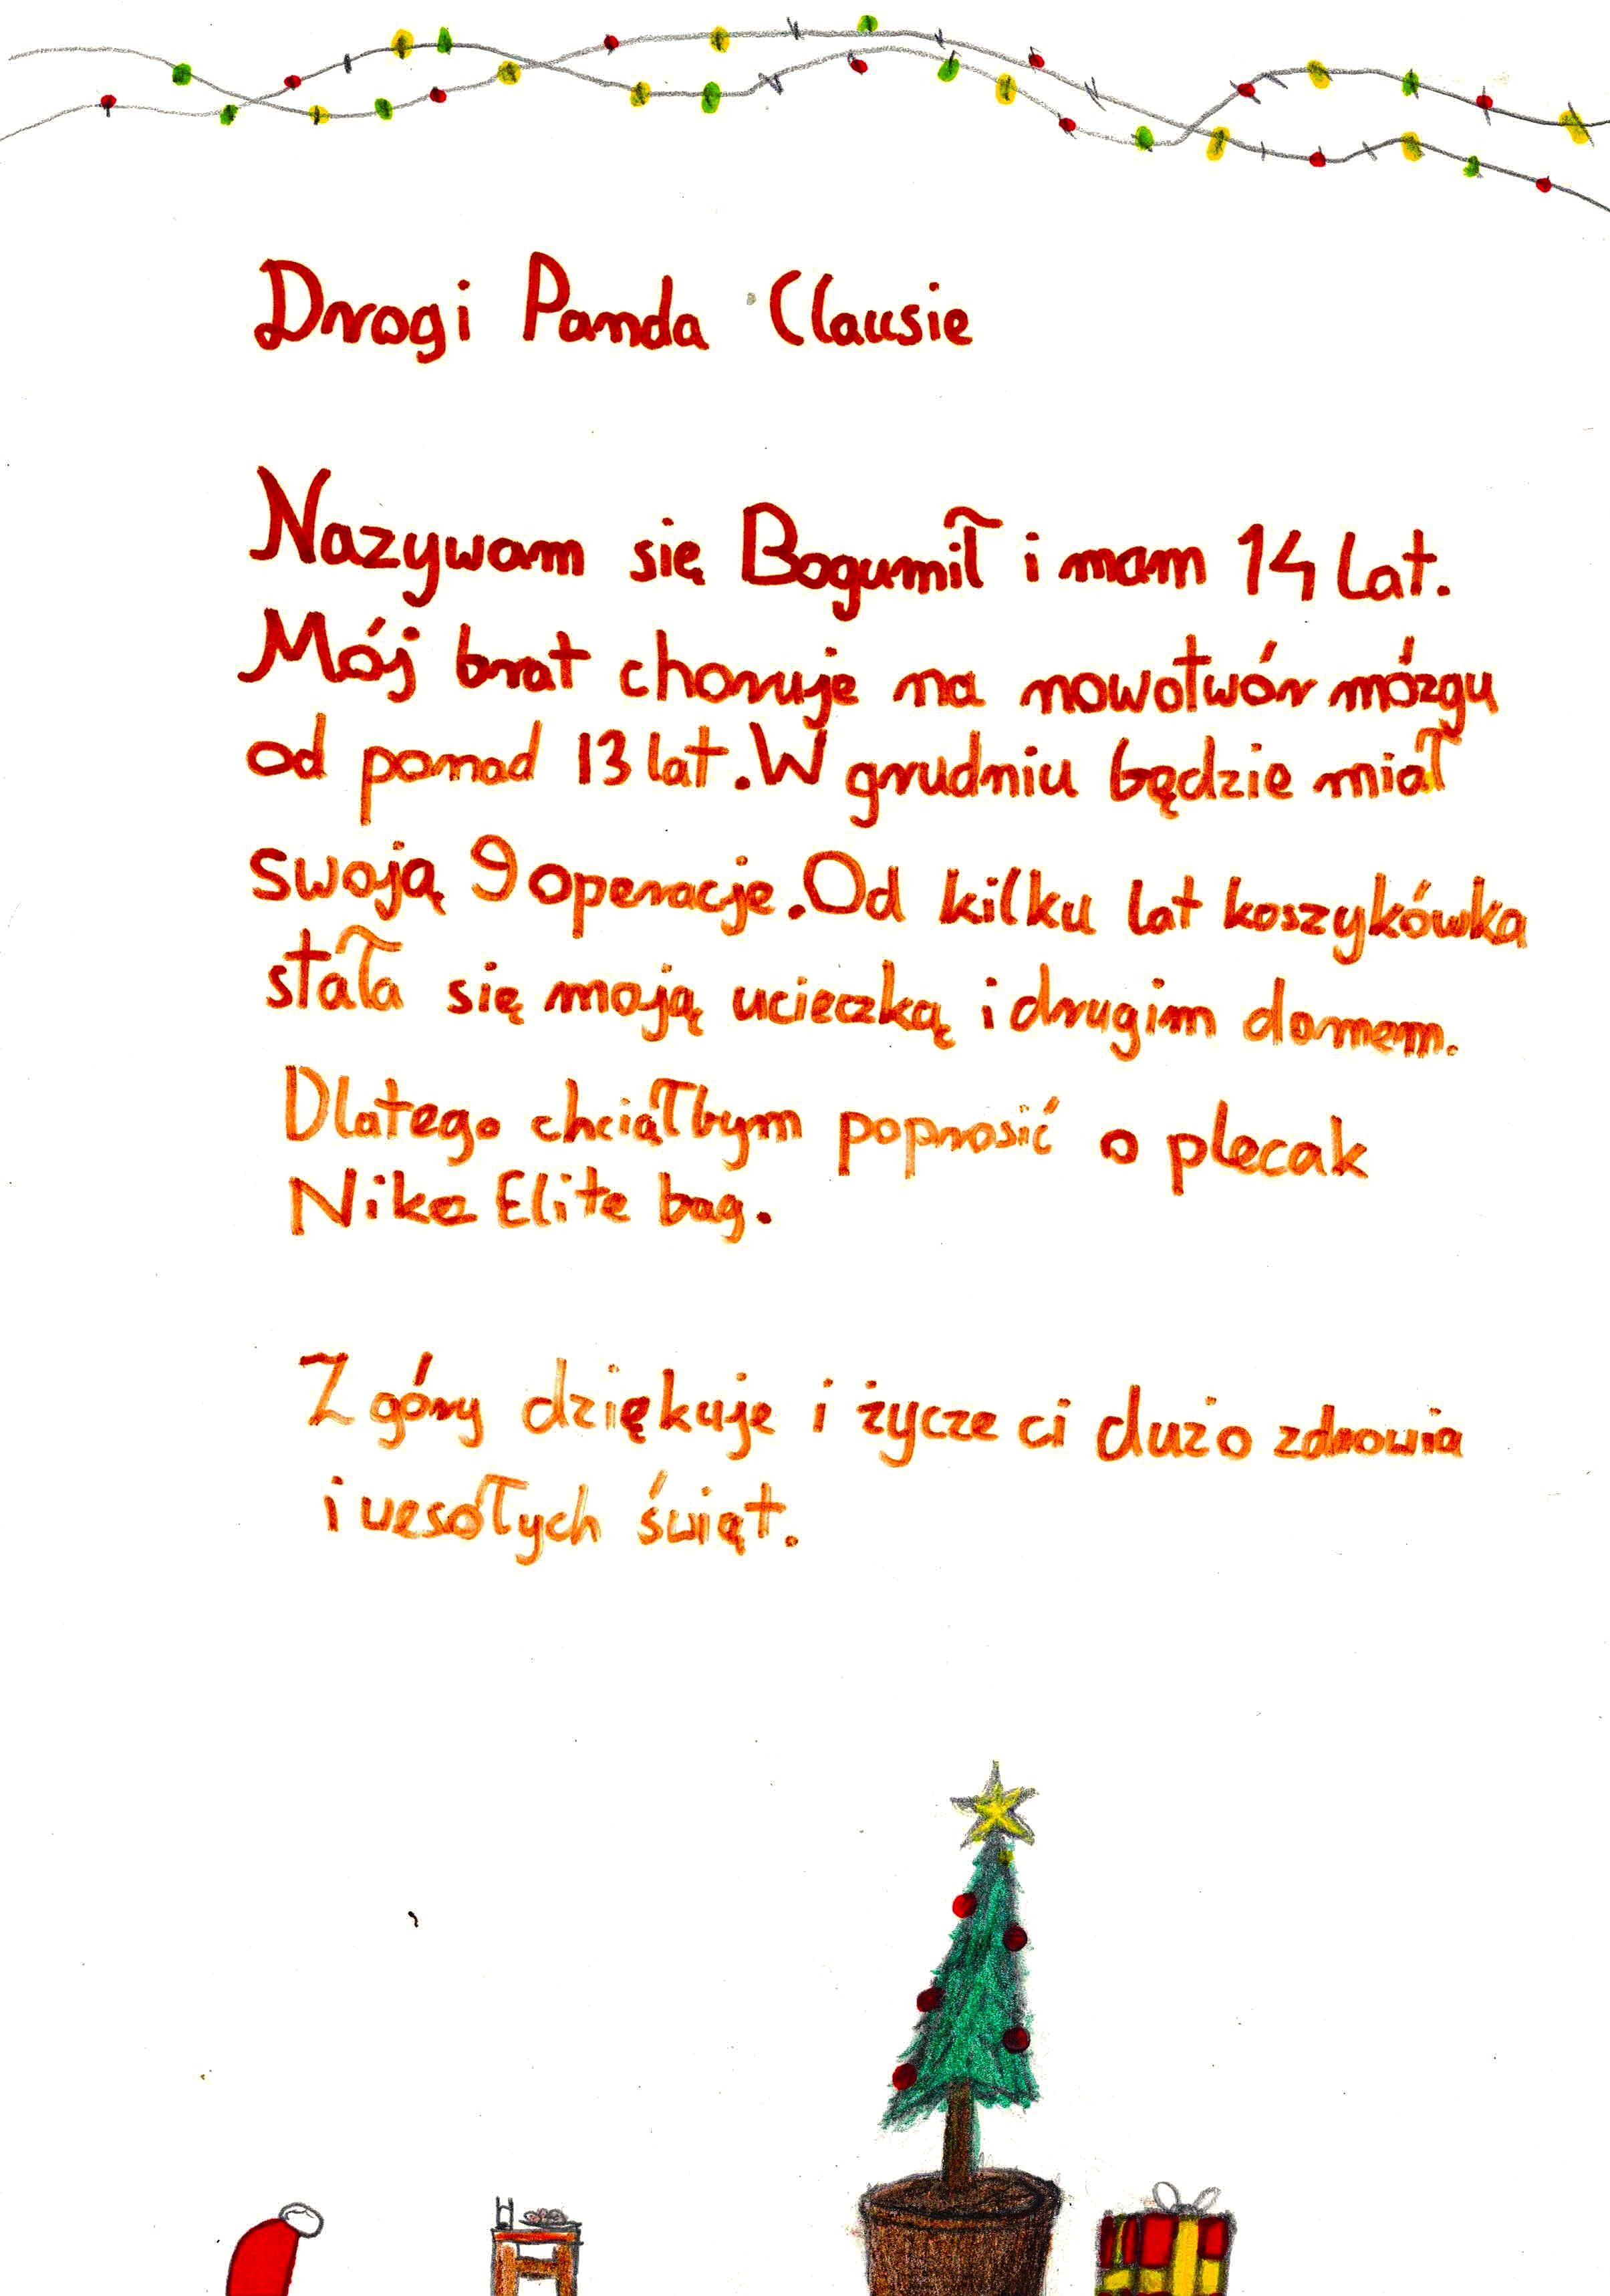 Drogi Panda Clausie
Nazywam się Bogumił i mam 14 lat.
Mój brat choruje na nowotwór mózgu
od ponad 13 lat. W grudniu będzie miał
swoją 9 operacje. Od kilku lat koszykówka
stała się moją ucieczką i drugim domem.
Dlatego chciałbym poprosić o plecak
Nike Elite bag.
Z góry dziękuje i życze ci dużo zdrowia
i wesołych świąt.